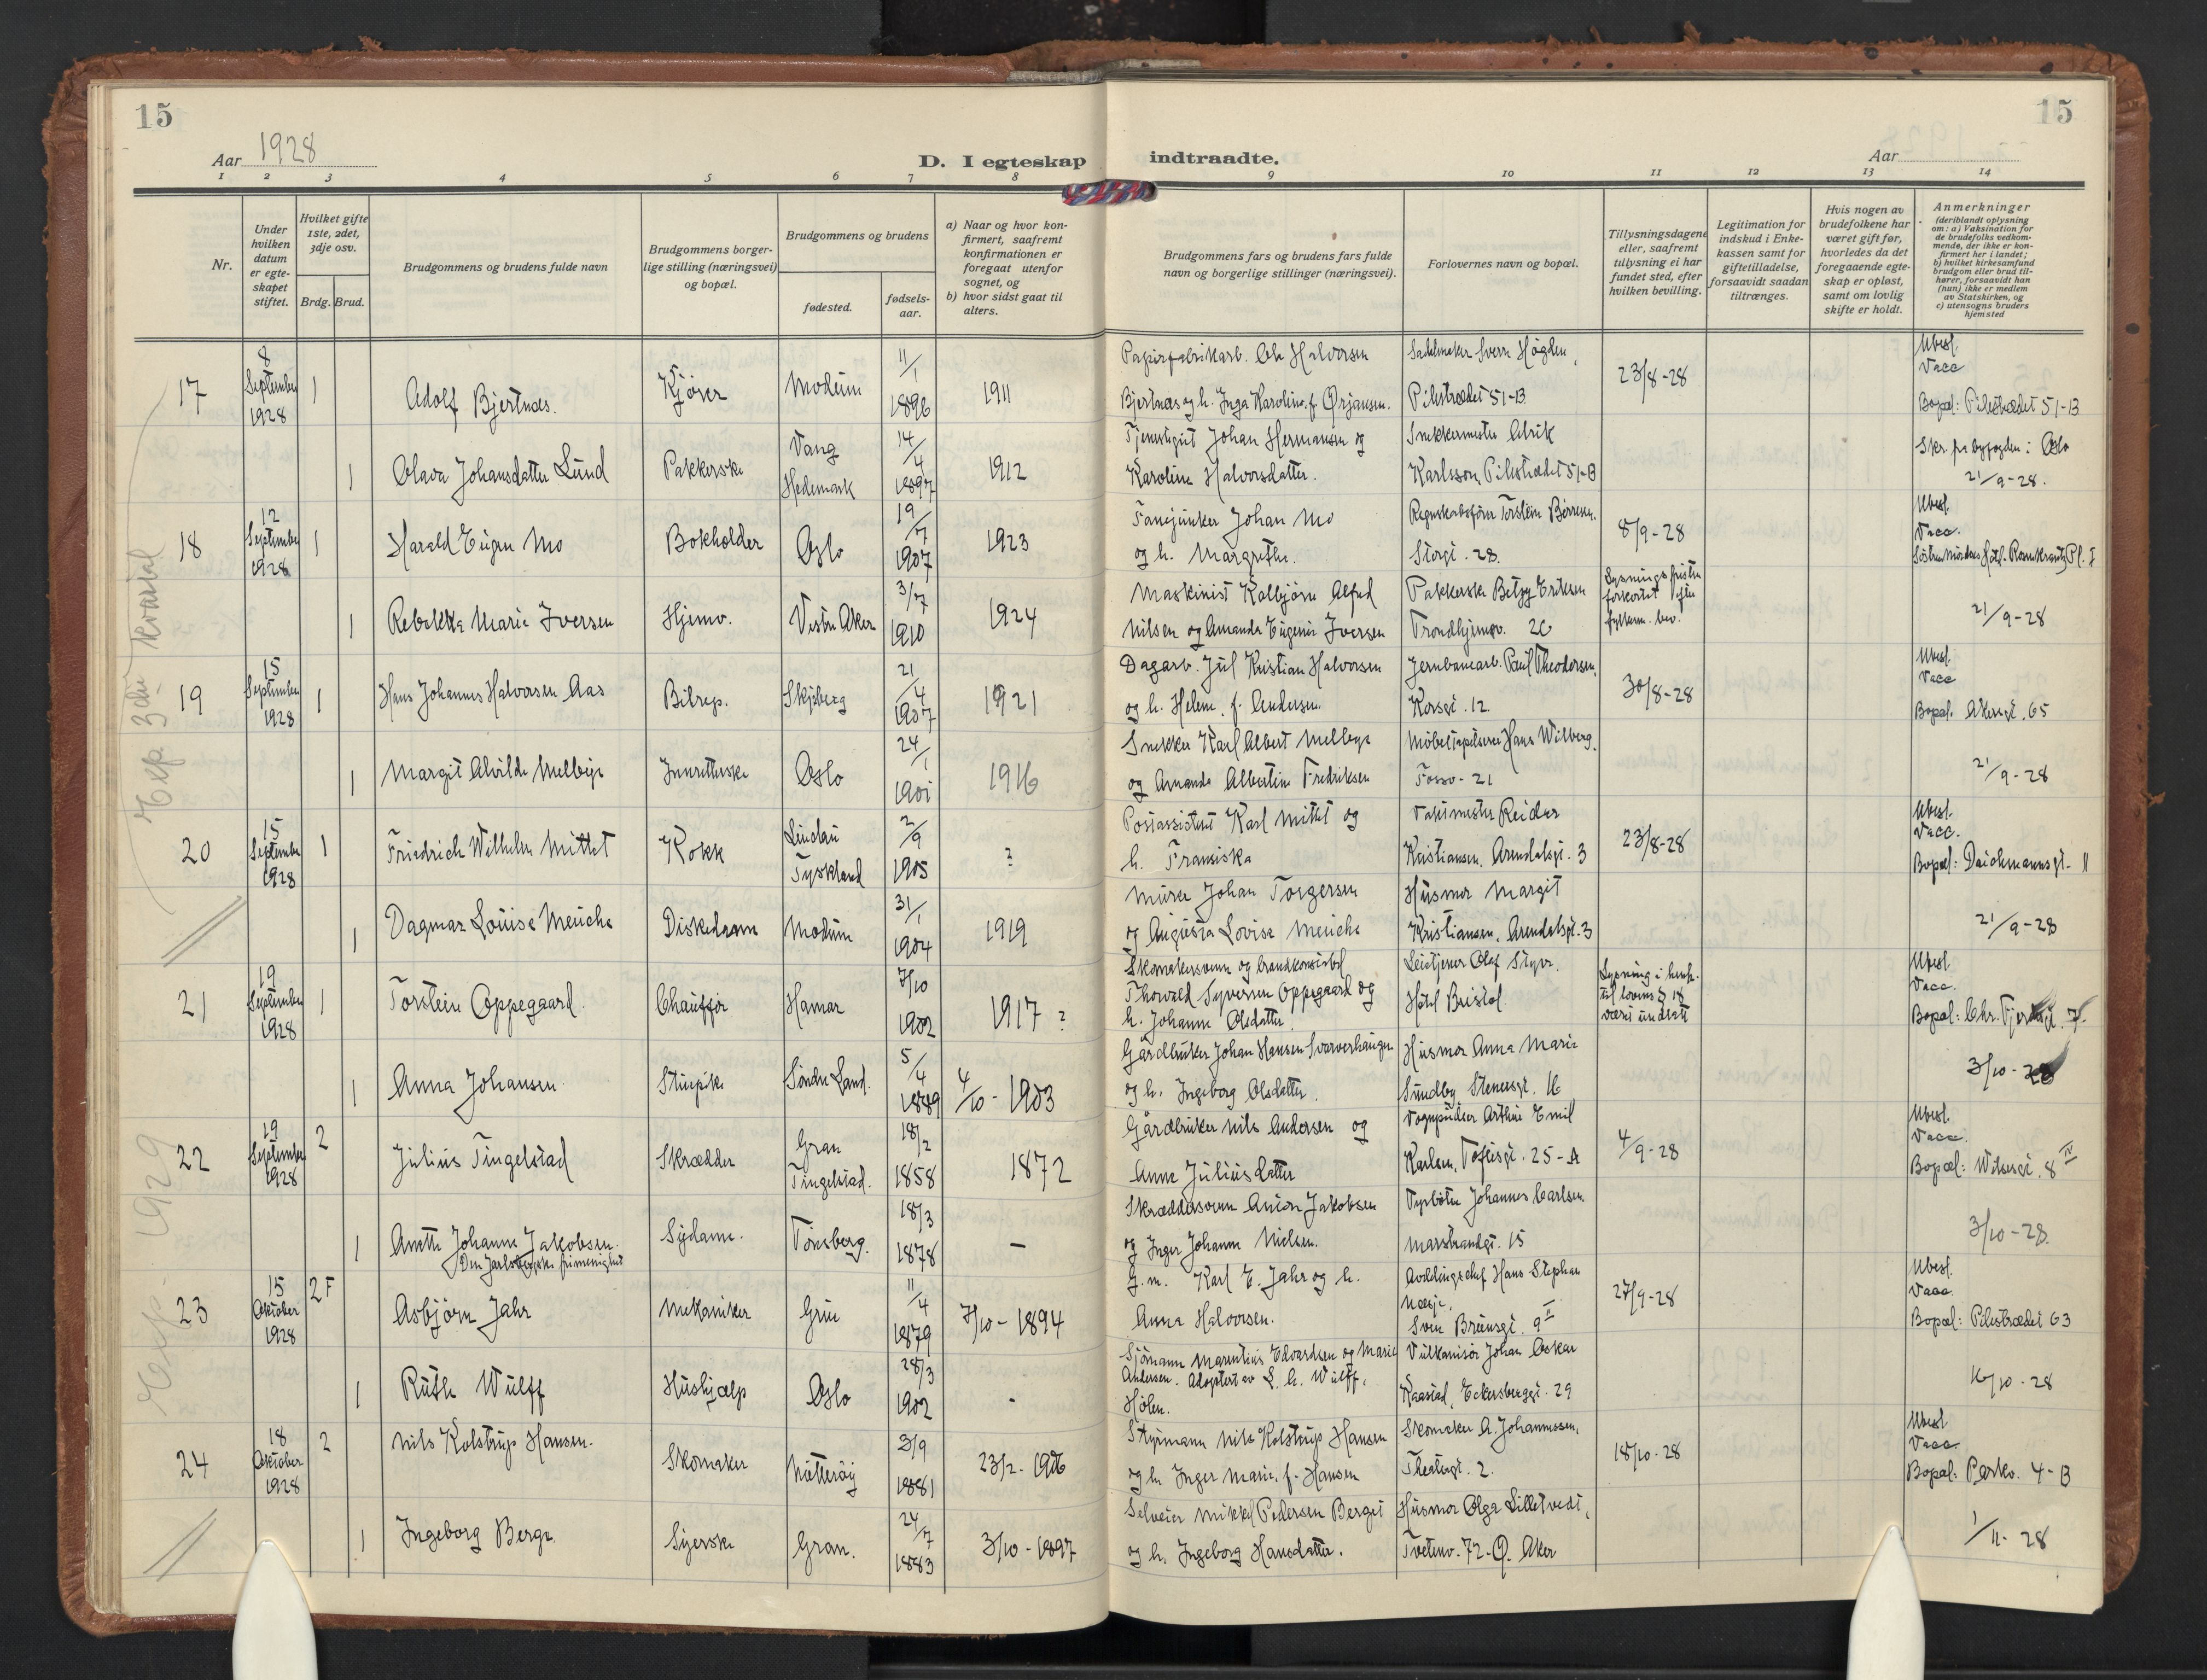 15
15
Aar 1928
D. I egteskap indtraadte.
Aar
1 2 3 4 5 6 7 8 9 10 11 12 13 14
Nr.
Under hvilken datum er egteskapet stiftet.
Hvilket gifte 1ste, 2det, 3dje osv.
Brdg. Brud.
Brudgommens og brudens fulde navn
Brudgommens borgerlige stilling (næringsvei) og bopæl.
Brudgommens og brudens
fødested.
fødselsaar.
a) Naar og hvor konfirmert, saafremt konfirmationen er foregaat utenfor sognet, og
b) hvor sidst gaat til alters.
Brudgommens fars og brudens fars fulde navn og borgerlige stillinger (næringsvei).
Forlovernes navn og bopæl.
Tillysningsdagene eller, saafremt tillysning ei har fundet sted, efter hvilken bevilling.
Legitimation for indskud i Enkekassen samt for giftetilladelse, forsaavidt saadan tiltrænges.
Hvis nogen av brudefolkene har været gift før, hvorledes da det foregaaende egteskap er opløst, samt om lovlig skifte er holdt.
Anmerkninger (deriblandt oplysning om: a) Vaksination for de brudefolks vedkommende, der ikke er konfirmert her i landet; b) hvilket kirkesamfund brudgom eller brud tilhører, forsaavidt han (hun) ikke er medlem av Statskirken, og c) utensogns bruders hjemsted
17 8 September 1928 1 Adolf Bjertnæs. Kjører Modum 11/1 1896 1911
Papirfabrikarb. Ole Halvorsen Bjertnæs og h. Inga Karoline, f. Ørjansen.
Sadelmaker Sverre Høgden, Pilestrædet 51-B
23/8-28
Ubesl. Vacc Bopæl: Pilestrædet 51-B
1 Olava Johansdatter Lund Pakkerske Vang Hedemark 14/4 1897 1912
Tjenestegut Johan Hermansen og Karoline Halvorsdatter.
Snekkermester Alrik Karlsson, Pilestrædet 51-B
Skr. fra byfogden i Oslo 21/9-28.
18 12 September 1928 1 Harald Eugen Mo Bokholder Oslo 19/7 1907 1923
Fanejunker Johan Mo og h. Margrethe.
Regnskabsfører Torstein Børresen. Storgt. 28.
8/9-28
Ubesl. Vacc.
1 Rebekka Marie Iversen Hjemv. Vestre Aker 3/7 1910 1924
Maskinist Kolbjørn Alfred Nilsen og Amanda Eugenie Iversen
Pakkerske Betzy Eriksen Trondhjemsv. 26
Lysningsfristen forkortet efter fylkesm. bev.
21/9-28
19 15 September 1928 1 Hans Johannes Halvorsen Aas Bilrep. Skjeberg 21/4 1907 1921
Dagarb. Jul Kristian Halvorsen og h. Helene, f. Andersen.
Jernbanearb. Paul Theodorsen. Korsgt. 12.
30/8-28
Ubesl. Vacc Bopæl. Akersgt. 65
1 Margit Alvilde Melbye Innretterske Oslo 24/1 1901 1916
Snekker Karl Albert Melbye og Amanda Albertine Fredriksen
Møbeltapetserer Hans Wilberg. Fossv. 21
21/9-28
20 15 September 1928 1 Friedrich Wilhelm Mittet Kokk Lindau Tyskland 2/9 1905 ?
Postassistent Karl Mittet og h. Fransiska
Vaktmester Reidar Kristiansen. Arendalsgt. 3
23/8-28
Ubesl. Vacc. Bopæl: Deichmannsgt. 11
1 Dagmar Louise Meuche Diskedame Modum 31/1 1904 1919
Murer Johan Torgersen og Augusta Lovise Meuche
Husmor Margit Kristiansen. Arendalsgt. 3
21/9-28
21 19 September 1928 1 Torstein Oppegaard. Chauffør Hamar 7/10 1902 1917 ?
Skomakersvenn og brandkonstabel Thorvald Syversen Oppegaard og h. Johanne Olsdatter.
Leietjener Olaf Styve. Hotel Bristol.
Lysning i henh. til lovens § 18 været undlatt
Ubesl. Vacc.
1 Anna Johansen. Stuepike Søndre Land. 5/4 1889 4/10-1903
Gårdbruker Johan Hansen Svarverhaugen og h. Ingeborg Olsdatter.
Husmor Anna Marie Sundby Stenersgt. 16
3/10-28
22 19 September 1928 2 Julius Tingelstad Skrædder Gran Tingelstad. 18/2 1858 1872
Gårdbruker Nils Andersen og Anne Juliusdatter
Vognpudser Arthur Emil Karlsen, Toftesgt. 25-A
4/9-28
Ubesl. Vacc. Bopæl: Wilsesgt. 8 IV
1 Anette Johanne Jakobsen. Den Jarlsbergske frimenighet Sydame. Tønsberg. 18/3 1878 -
Skræddersvenn Anton Jakobsen og Inger Johanne Nielsen.
Fyrbøter Johannes Carlsen. Marstrandgt. 15
3/10-28.
23 15 Oktober 1928 2F Asbjørn Jahr Mekaniker Grue 11/4 1879 7/10-1894
G.m. Karl E. Jahr og h. Anna Halvorsen.
Avdelingschef Hans Stephan Næsje, Sven Bruunsgt. 9 II
27/9-28
Ubesl. Vacc. Bopæl: Pilestrædet 63
1 Ruth Wulff Hushjælp Oslo 28/3 1902 -
Sjømann Marentius Edvardsen og Marie Andersen. Adoptert av L. h. Wulff, Hølen.
Vulkanisør Johan Oskar Kaastad, Eckersberggt. 29
16/10-28
24 18 Oktober 1928 2 Nils Kolstrup Hansen. Skomaker Nøtterøy 3/9 1881 23/2-1926
Styrmann Nils Kolstrup Hansen og h. Inger Marie, f. Hansen
Skomaker A. Johannessen, Theatergt. 2.
18/10-28
Ubesl. Vacc. Bopæl: Parkv. 4-B
1 Ingeborg Berge. Syerske Gran. 24/7 1883 3/10-1897
Selveier Mikkel Pedersen Berget og h. Ingeborg Hansdatter.
Husmor Olga Lilletvedt, Tvetenv. 72-Q. Aker
1/11-28
Exp. 3die kvartal
1929